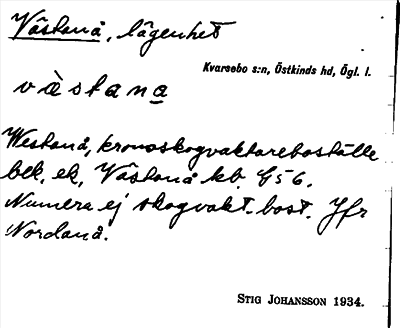 Västanå, lägenhet
Kvarsebo s:n, Östkinds hd, Ögl. l.
v ä̀ s t a n a
Westanå, kronoskogvaktareboställe
bek. ek, Västanå kb. G 5 6.
Numera ej skogvakt. bost. Jfr
Nordanå.
STIG JOHANSSON 1934.